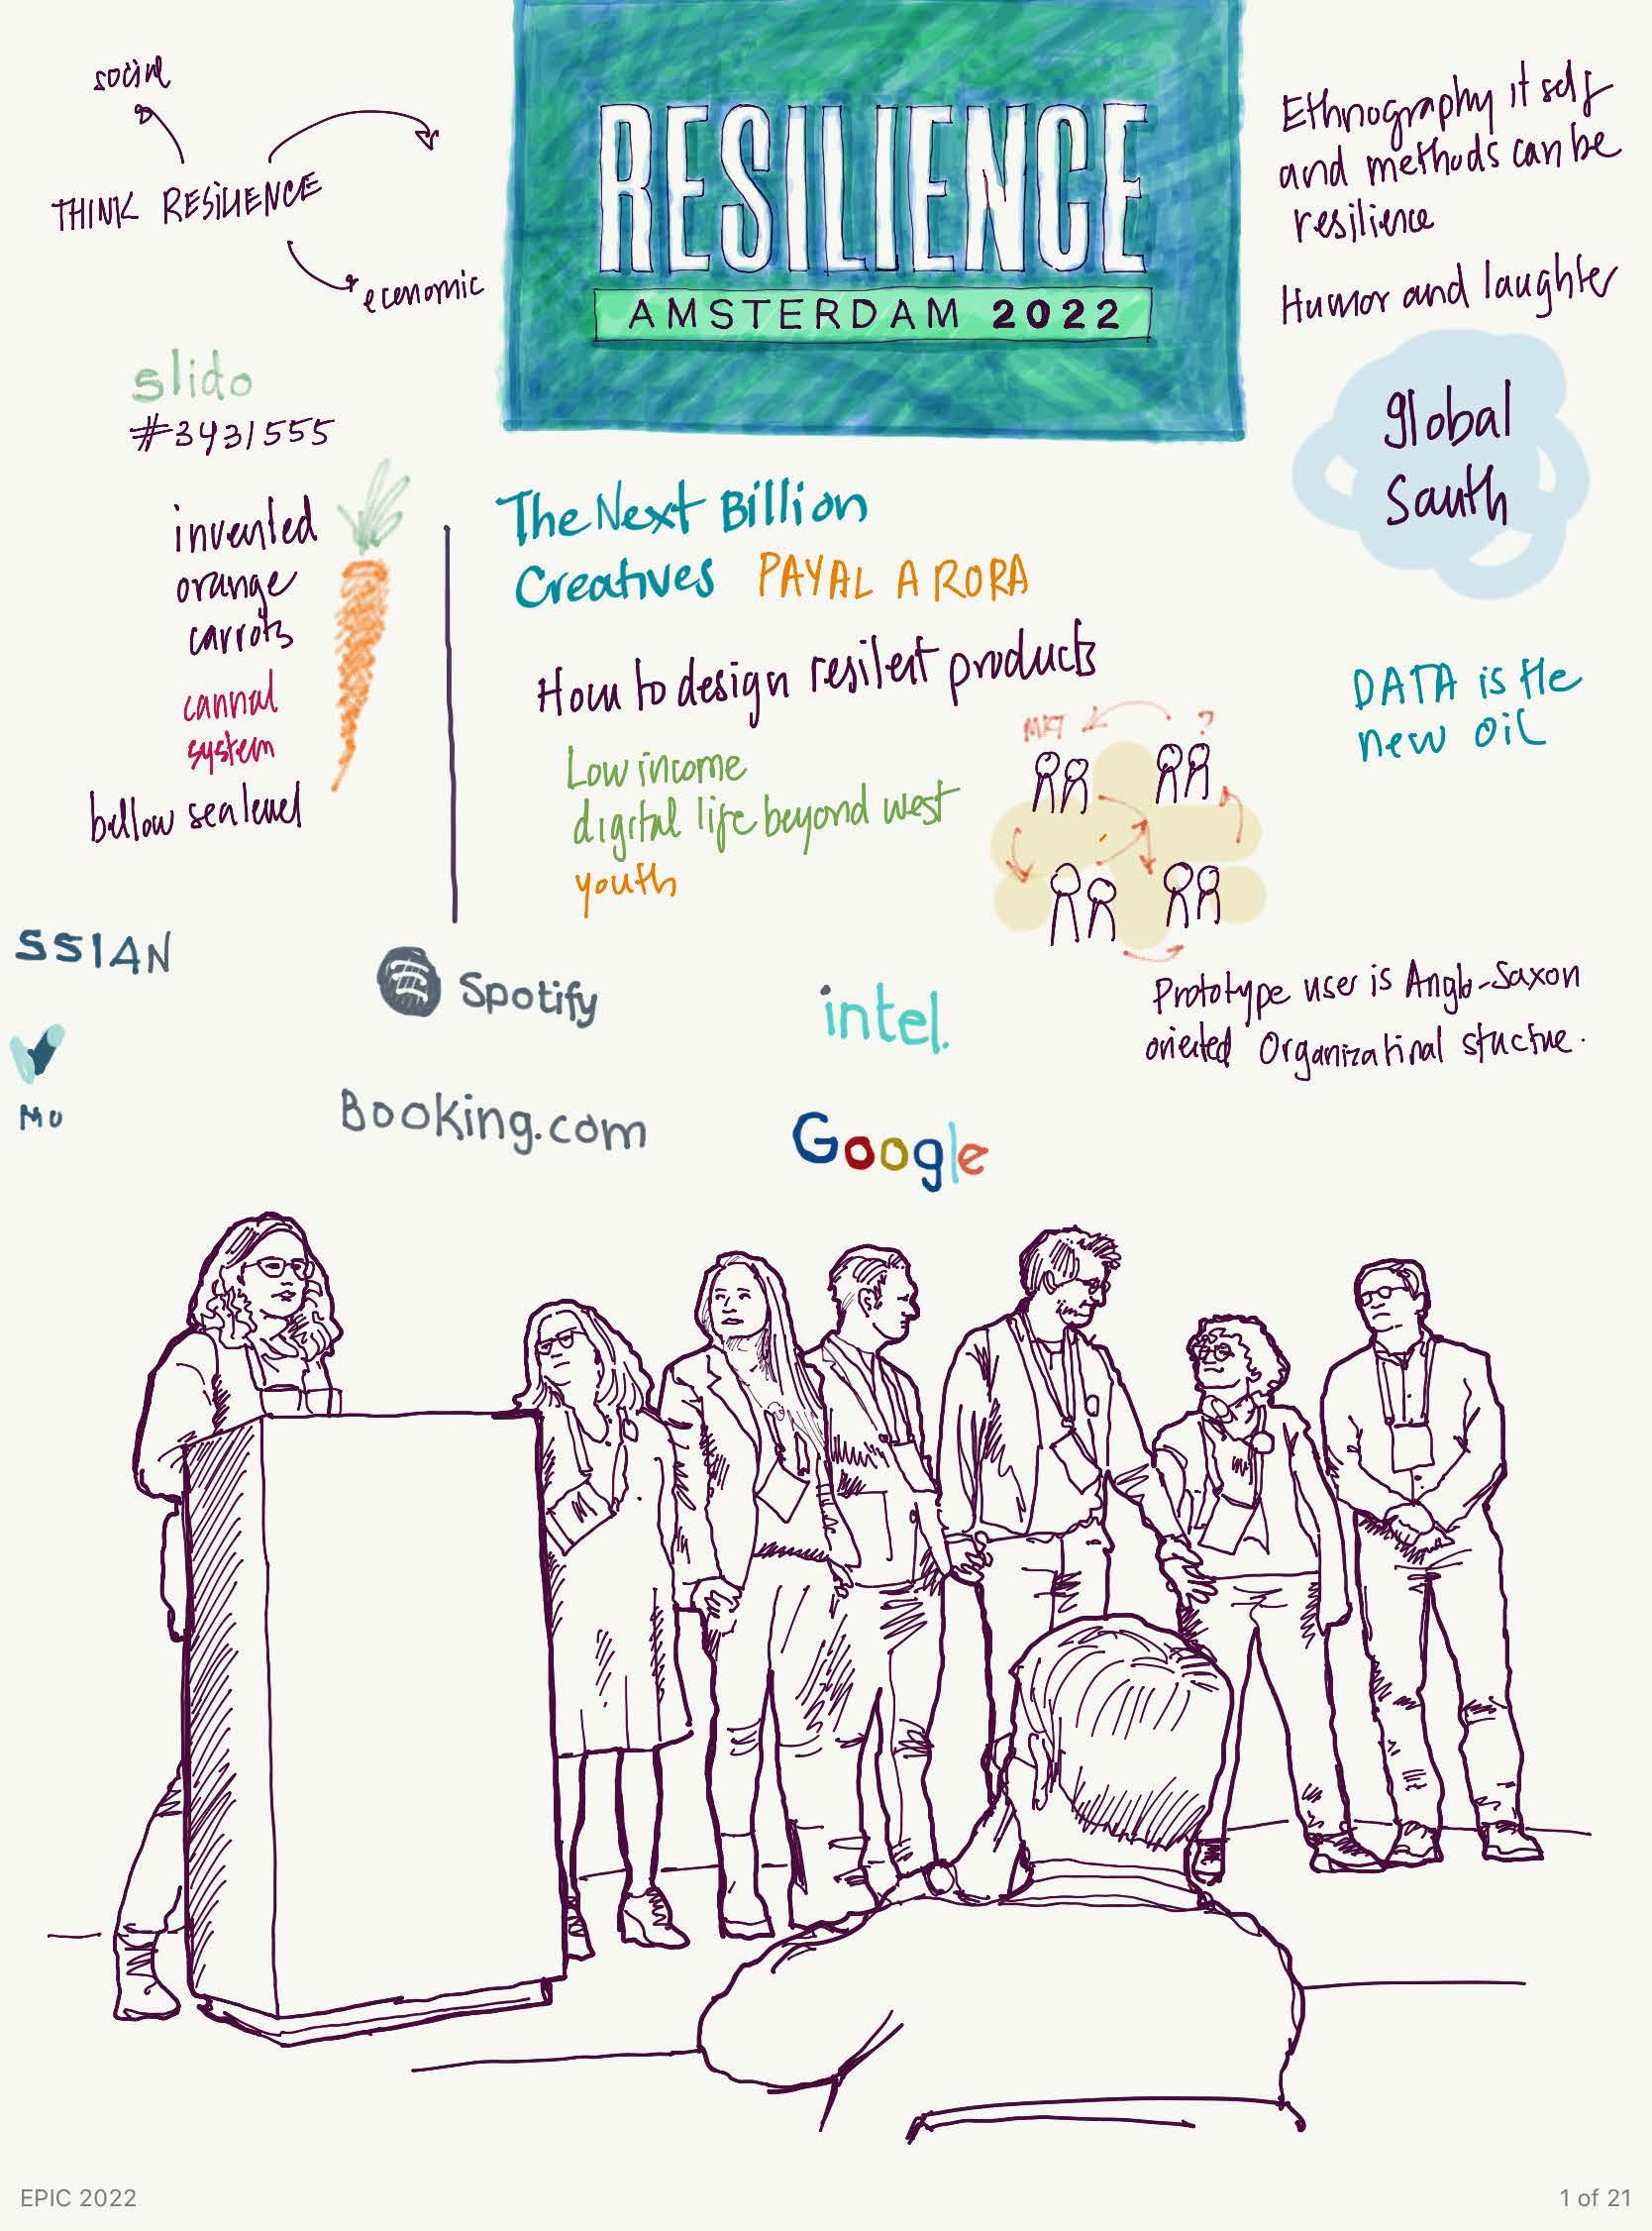 RESILIENCE
AMSTERDAM 2022
social
THINK RESILIENCE
economic
Ethnography itself
and methods can be
resilience
Humor and laughter
slido
#3431555
global
South
invented
orange
carrots
cannal
system
bellow sea level
The Next Billion
Creatives PAYAL ARORA
How to design resilent products
Low income
digital life beyond west
youth
MKT ?
DATA is the
new oil
SSIAN
Spotify
intel.
Prototype user is Anglo-Saxon
oriented Organizatinal stuctue.
MU
Booking.com
Google
EPIC 2022
1 of 21